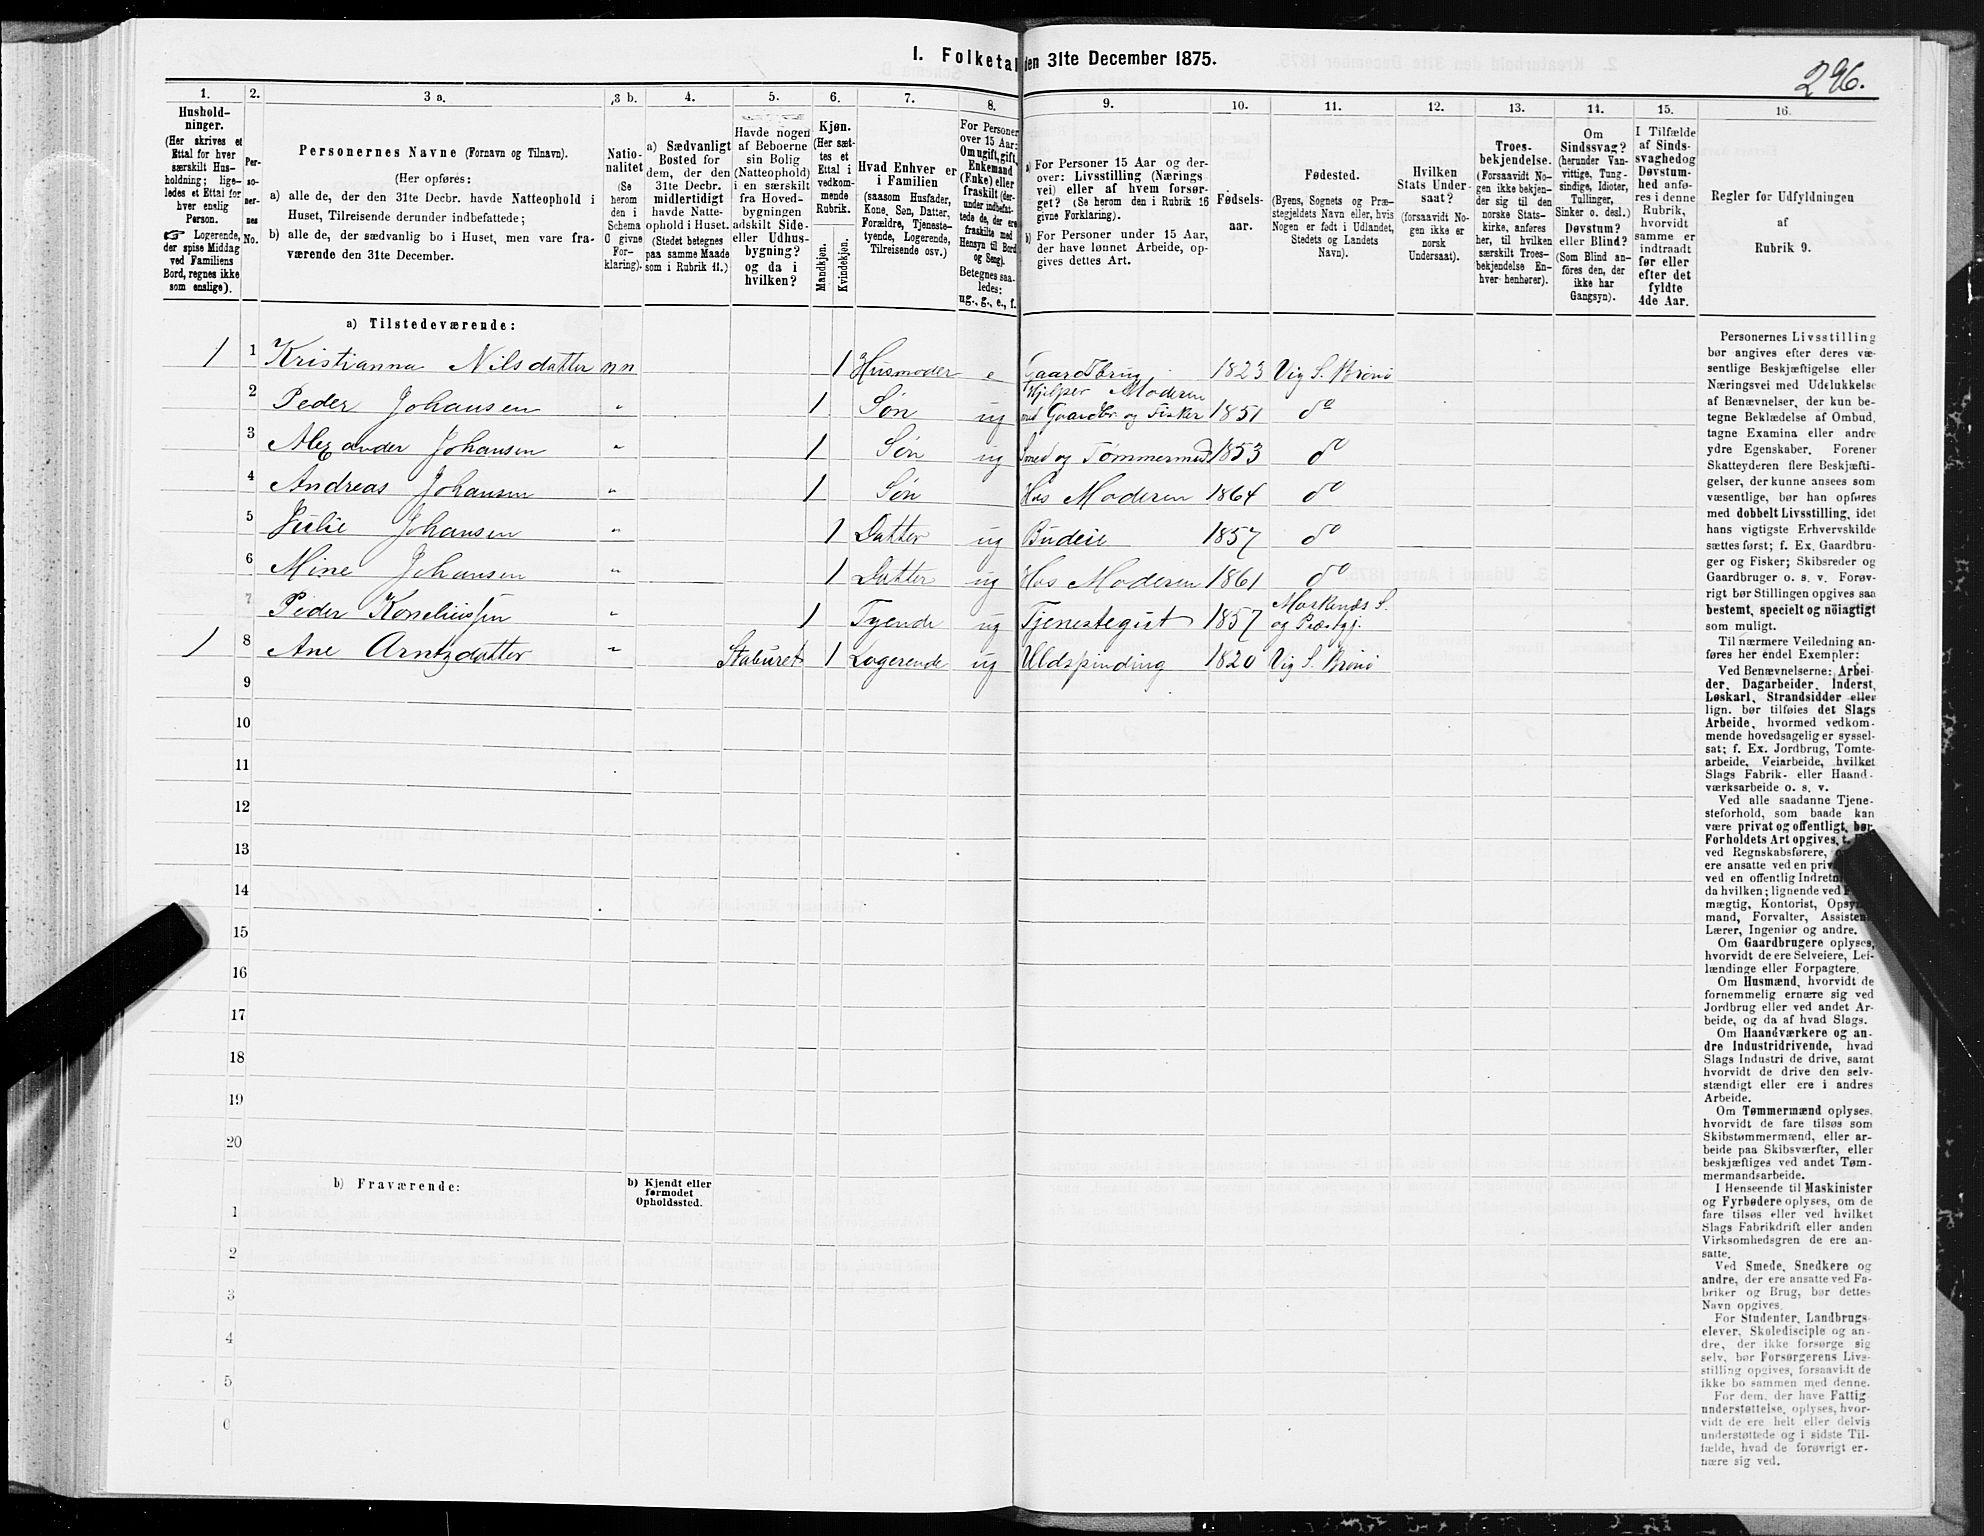 I. Folketal den 31te December 1875.
296.
1. 2. 3 a. 3 b. 4. 5. 6. 7. 8. 9. 10. 11. 12. 13. 14. 15. 16.
Hushold-
ninger.
(Her skrives et
Ettal for hver
særskilt Hus-
holdning; lige-
ledes et Ettal for
hver enslig
Person.
☞ Logerende,
der spise Middag
ved Familiens
Bord, regnes ikke
som enslige).
Per-
so-
ner-
nes
No.
Personernes Navne (Fornavn og Tilnavn).
(Her opføres:
a) alle de, der den 31te Decbr. havde Natteophold i
Huset, Tilreisende derunder indbefattede;
b) alle de, der sædvanlig bo i Huset, men vare fra-
værende den 31te December.
Natio-
nalitet
(Se
herom
den i
Schema
C givne
For-
klaring).
a) Sædvanligt
Bosted for
dem, der den
31te Decbr.
midlertidigt
havde Natte-
ophold i Huset.
(Stedet betegnes
paa samme Maade
som i Rubrik 11.)
Havde nogen
af Beboerne
sin Bolig
(Natteophold)
i en særskilt
fra Hoved-
bygningen
adskilt Side-
eller Udhus-
bygning?
og da i
hvilken?
Kjøn.
(Her sæt-
tes et
Ettal i
vedkom-
mende
Rubrik.
Mandkjøn.
Kvindekjøn.
Hvad Enhver er
i Familien
(saasom Husfader,
Kone, Søn, Datter,
Forældre, Tjeneste-
tyende, Logerende,
Tilreisende osv.)
For Personer
over 15 Aar:
Om ugift, gift,
Enkemand
(Enke) eller
fraskilt (der-
under indbefat-
tede de, der ere
fraskilte med
Hensyn til Bord
og Seng).
Betegnes saa-
ledes:
ug., g., e., f.
a) For Personer 15 Aar og der-
over: Livsstilling (Nærings
vei) eller af hvem forsør-
get? (Se herom den i Rubrik 16
givne Forklaring).
b) For Personer under 15 Aar,
der have lønnet Arbeide, op-
gives dettes Art.
Fødsels-
aar.
Fødested.
(Byens, Sognets og Præ-
stegjeldets Navn eller, hvis
Nogen er født i Udlandet,
Stedets og Landets
Navn).
Hvilken
Stats Under-
saat?
(forsaavidt No-
gen ikke er
norsk
Undersaat).
Troes-
bekjendelse.
(Forsaavidt No-
gen ikke bekjen-
der sig til den
norske Stats-
kirke, anføres
her, til hvilken
særskilt Troes-
bekjendelse En-
hver henhører).
Om
Sindssvag?
(herunder Van-
vittige, Tung-
sindige, Idioter,
Tullinger,
Sinker o. desl.)
Døvstum?
eller Blind?
(Som Blind an-
føres den, der
ikke har
Gangsyn).
I Tilfælde
af Sinds-
svaghed og
Døvstum-
hed anfø-
res i denne
Rubrik,
hvorvidt
samme er
indtraadt
før eller
efter det
fyldte
4de Aar.
Regler for Udfyldningen
af
Rubrik 9.
a) Tilstedeværende:
1 1 Kristianna Nilsdatter nn 1 Husmoder e Gaardbrug 1823 Vig S. Brønø
2 Peder Johansen " 1 Søn ug Hjelper Moderen med Gaardbr. og Fisker 1851 do
3 Alexander Johansen " 1 Søn ug Smed og Tømmermand 1853 do
4 Andreas Johansen " 1 Søn Hos Moderen 1864 do
5 Julie Johansen " 1 Datter ug Budeie 1857 do
6 Mine Johansen " 1 Datter ug Hos Moderen 1861 do
7 Peder Korneliussen " 1 Tyende ug Tjenestegut 1857 Moskenæs S. og Præstgj.
1 8 Ane Arntzdatter " Staburet 1 Logerende ug Uldspinding 1820 Vig S. Brønø
9
10
11
12
13
14
15
16
17
18
19
20
b) Fraværende:
b) Kjendt eller
formodet
Opholdssted.
1
2
3
4
5
6
Personernes Livsstilling
bør angives efter deres væ-
sentlige Beskjæftigelse eller
Næringsvei med Udelukkelse
af Benævnelser, der kun be-
tegne Beklædelse af Ombud,
tagne Examina eller andre
ydre Egenskaber. Forener
Skatteyderen flere Beskjæfti-
gelser, der kunne ansees som
væsentlige, bør han opføres
med dobbelt Livsstilling, idet
hans vigtigste Erhvervskilde
sættes først; f. Ex. Gaardbru-
ger og Fisker; Skibsreder og
Gaardbruger o. s. v. Forøv-
rigt bør Stillingen opgives saa
bestemt, specielt og nöiagtigt
som muligt.
Til nærmere Veiledning an-
føres her endel Exempler:
Ved Benævnelserne: Arbei-
der, Dagarbeider, Inderst,
Løskarl, Strandsidder eller
lign. bør tilføies det Slags
Arbeide, hvormed vedkom-
mende hovedsagelig er syssel-
sat; f. Ex. Jordbrug, Tomte-
arbeide, Veiarbeide, hvilket
Slags Fabrik- eller Haand-
værksarbeide o. s. v.
Ved alle saadanne Tjene-
steforhold, som baade kan
være privat og offentligt, bør
Forholdets Art opgives,
ved Regnskabsførere,
ere ansatte ved en
ved en offentlig
da hvilken; lignende ved
mægtig, Kontorist,
mand, Forvalter,
Lærer, Ingeniør og andre.
Om Gaardbrugere oplyses,
hvorvidt de ere Selveiere, Lei-
lændinge eller Forpagtere.
Om Husmænd, hvorvidt de
fornemmelig ernære sig ved
Jordbrug eller ved andet Ar-
beide, og da af hvad Slags.
Om Haandværkere og an-
dre Industridrivende, hvad
Slags Industri de drive, samt
hvorvidt de drive den selv-
stændigt eller ere i andres
Arbeide.
Om Tømmermænd oplyses,
hvorvidt de fare tilsøs som
Skibstømmermænd, eller ar-
beide paa Skibsværfter, eller
beskjæftiges ved andet Tøm-
mermandsarbeide.
I Henseende til Maskinister
og Fyrbødere oplyses, om de
fare tilsøs eller ved hvilket
Slags Fabrikdrift eller anden
Virksomhedsgren de ere an-
satte.
Ved Smede, Snedkere og
andre, der ere ansatte ved Fa-
briker og Brug, bør dettes
Navn opgives.
For Studenter, Landbrugs-
elever, Skoledisciple og an-
dre, der ikke forsørge sig
selv, bør Forsørgerens Livs-
stilling opgives, forsaavidt de
ikke bo sammen med denne.
For dem, der have Fattig
understøttelse, oplyses, hvor-
vidt de ere helt eller delvis
understøttede og i sidste Til-
fælde, hvad de forøvrigt er-
nære sig ved.